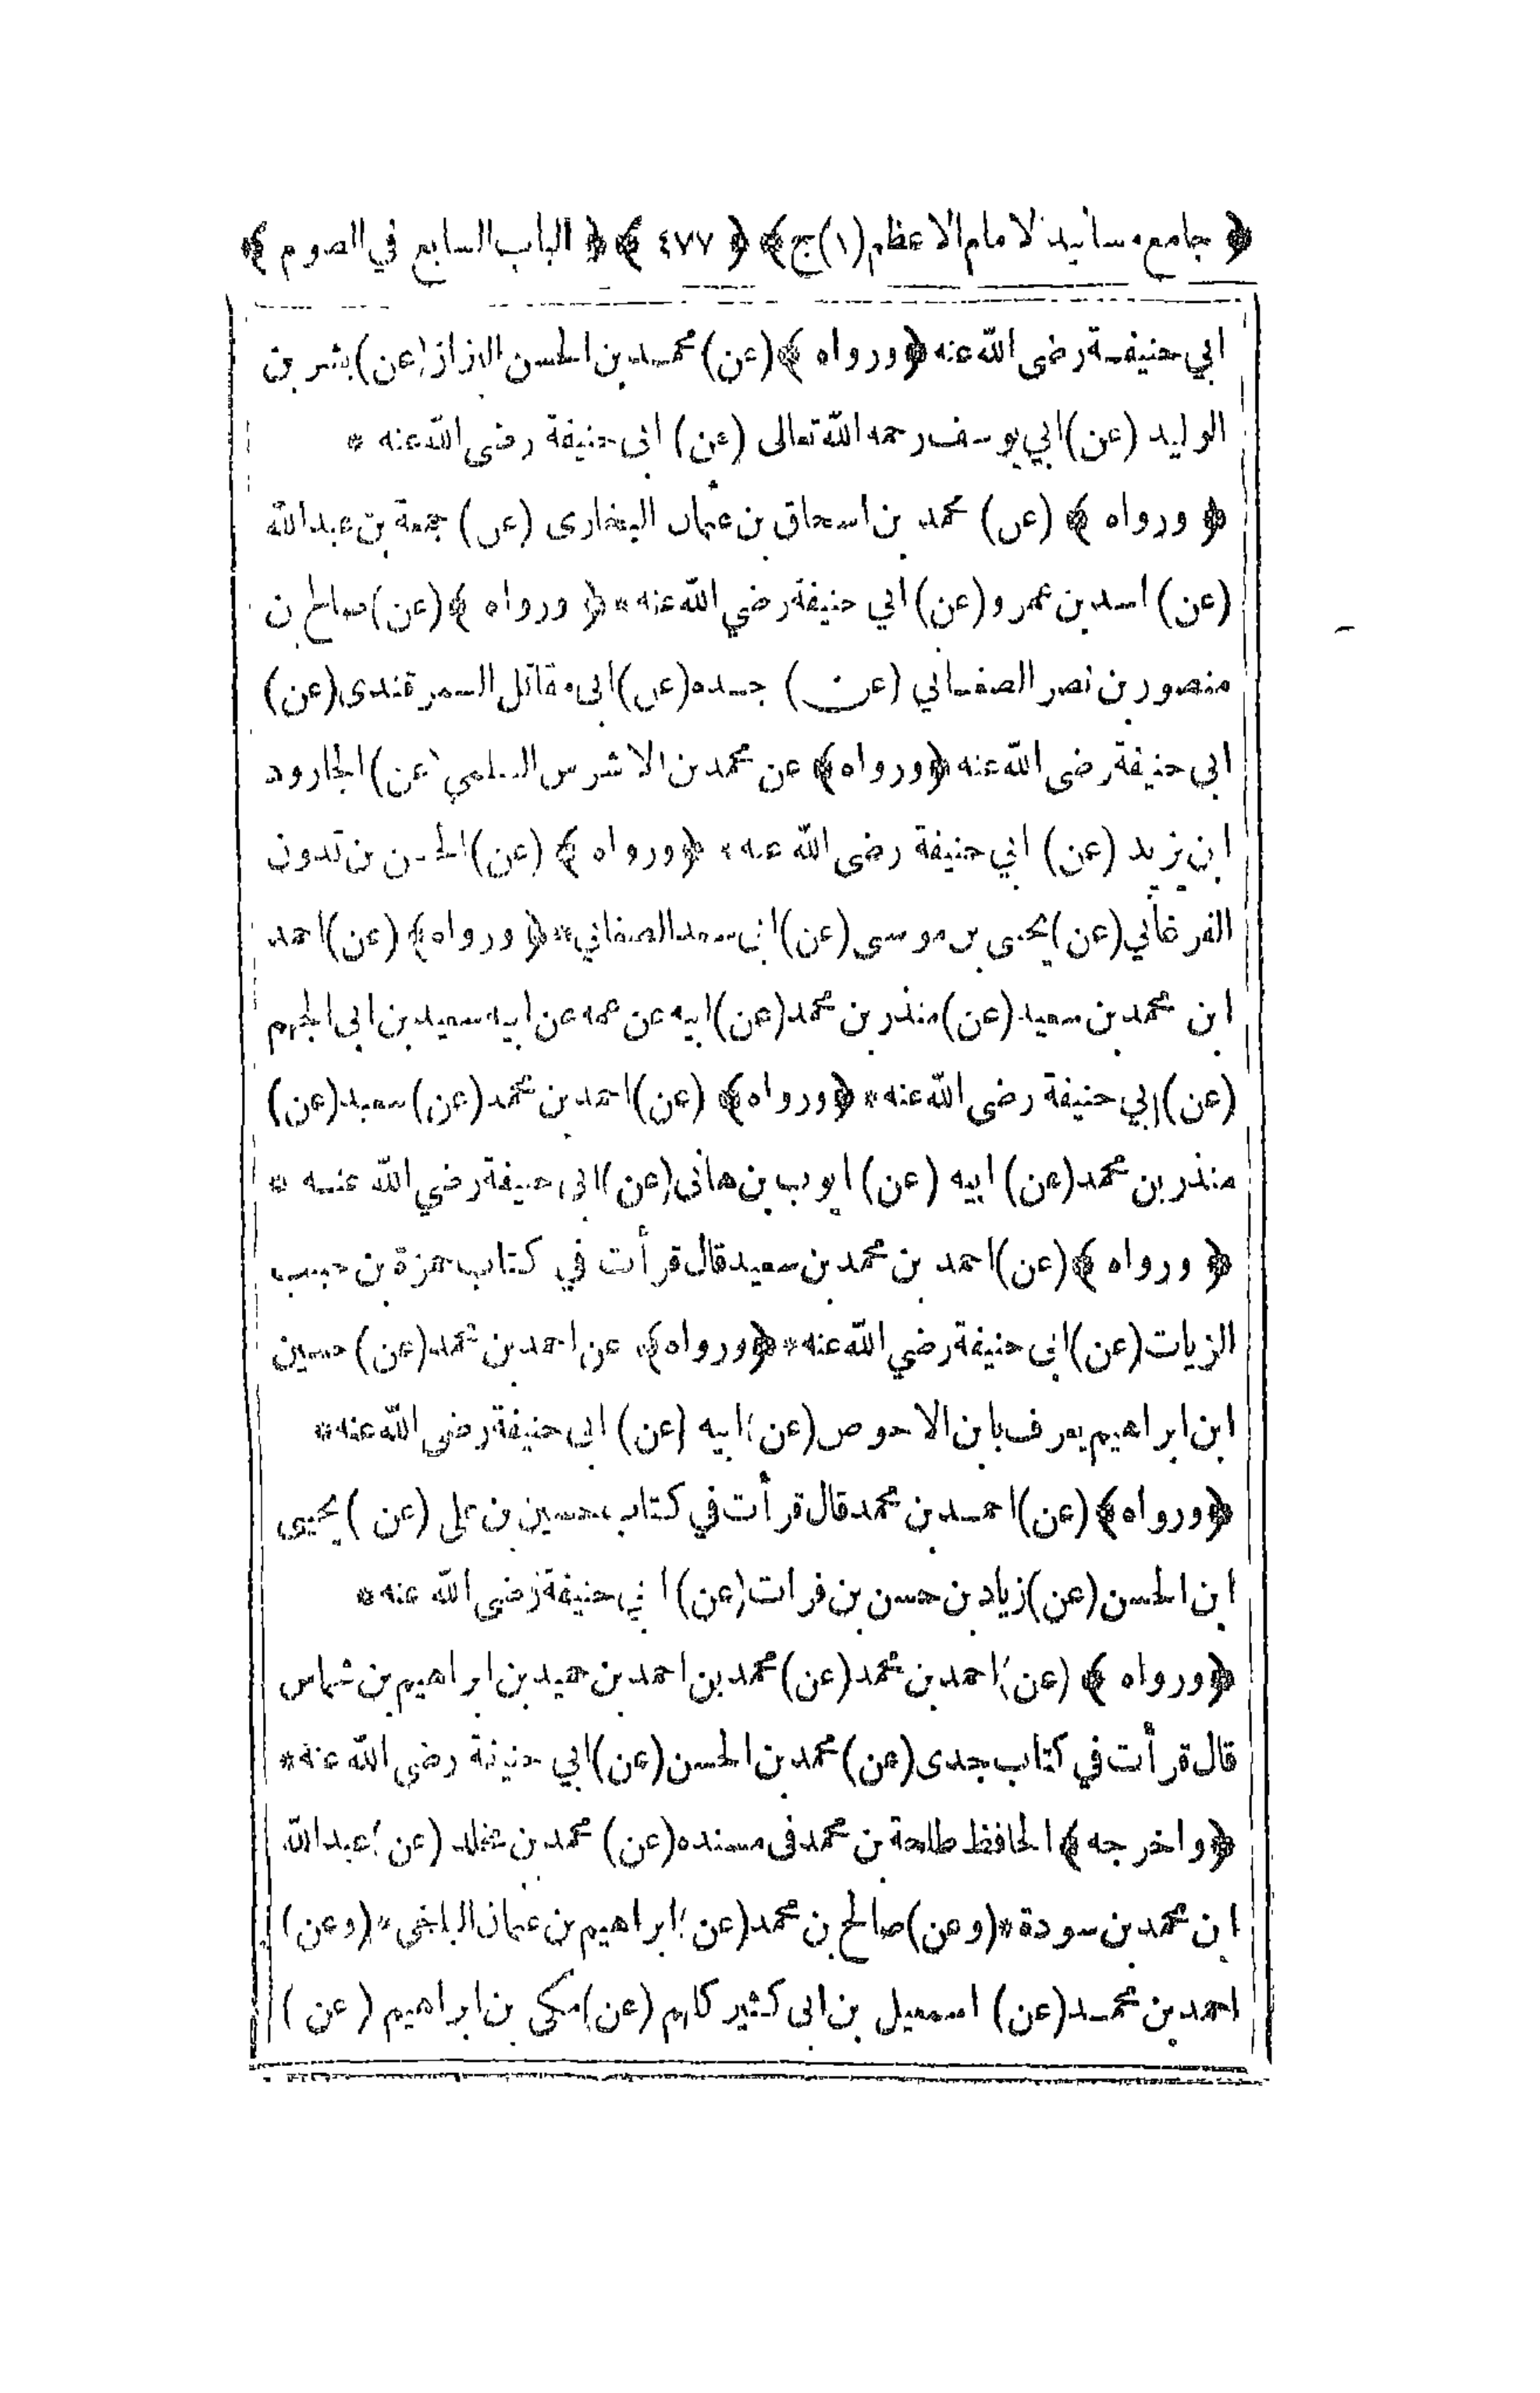 ﴿ جامع مسانيد الامام الاعظم (١) ج ﴾ ﴿ ٤٧٧ ﴾ ﴿ الباب السابع في الصوم ﴾
ابي حنيفة رضى الله عنه ﴿ ورواه ﴾ (عن) محمد بن الحسن البزاز (عن) بشر بن
الوليد (عن) ابي يوسف رحمه الله تعالى (عن) ابى حنيفة رضى الله عنه *
﴿ ورواه ﴾ (عن) محمد بن اسحاق بن عثمان البخارى (عن) جمعة بن عبد الله
(عن) اسد بن عمرو (عن) ابي حنيفة رضي الله عنه * ﴿ ورواه ﴾ (عن) صالح بن
منصور بن نصر الصغاني (عن) جده (عن) ابى مقاتل السمرقندى (عن)
ابى حنيفة رضى الله عنه ﴿ ورواه ﴾ عن محمد بن الاشرس السلمي (عن) الجارود
ابن يزيد (عن) ابي حنيفة رضى الله عنه * ﴿ ورواه ﴾ (عن) الحسن بن
الفرغاني (عن) يحيى بن موسى (عن) ابى سعد الصغاني * ﴿ ورواه ﴾ (عن) احمد
ابن محمد بن سعيد (عن) منذر بن محمد (عن) ابيه عن عمه عن ابيه سعيد بن ابى الجهم
(عن) ابي حنيفة رضى الله عنه * ﴿ ورواه ﴾ (عن) احمد بن محمد (عن) سعيد (عن)
منذر بن محمد (عن) ابيه (عن) ايوب بن هانى (عن) ابى حنيفة رضي الله عنه *
﴿ ورواه ﴾ (عن) احمد بن محمد بن سعيد قال قرأت في كتاب حمزة بن حبيب
الزيات (عن) ابى حنيفة رضي الله عنه * ﴿ ورواه ﴾ عن احمد بن محمد (عن) حسين
ابن ابراهيم يعرف بابن الاحوص (عن) ابيه (عن) ابى حنيفة رضى الله عنه *
﴿ ورواه ﴾ (عن) احمد بن محمد قال قرأت في كتاب حسين بن على (عن) يحيى
ابن الحسن (عن) زياد بن حسن بن فرات (عن) ابي حنيفة رضى الله عنه *
﴿ ورواه ﴾ (عن) احمد بن محمد (عن) محمد بن احمد بن حميد بن ابراهيم بن شماس
قال قرأت في كتاب جدى (عن) محمد بن الحسن (عن) ابي حنيفة رضى الله عنه *
﴿ واخرجه ﴾ الحافظ طلحة بن محمد فى مسنده (عن) محمد بن مخلد (عن) عبد الله
ابن محمد بن سودة * (وعن) صالح بن محمد (عن) ابراهيم بن عثمان البلخى * (وعن)
احمد بن محمد (عن) اسمعيل بن ابى كثير كلهم (عن) مكى بن ابراهيم (عن)